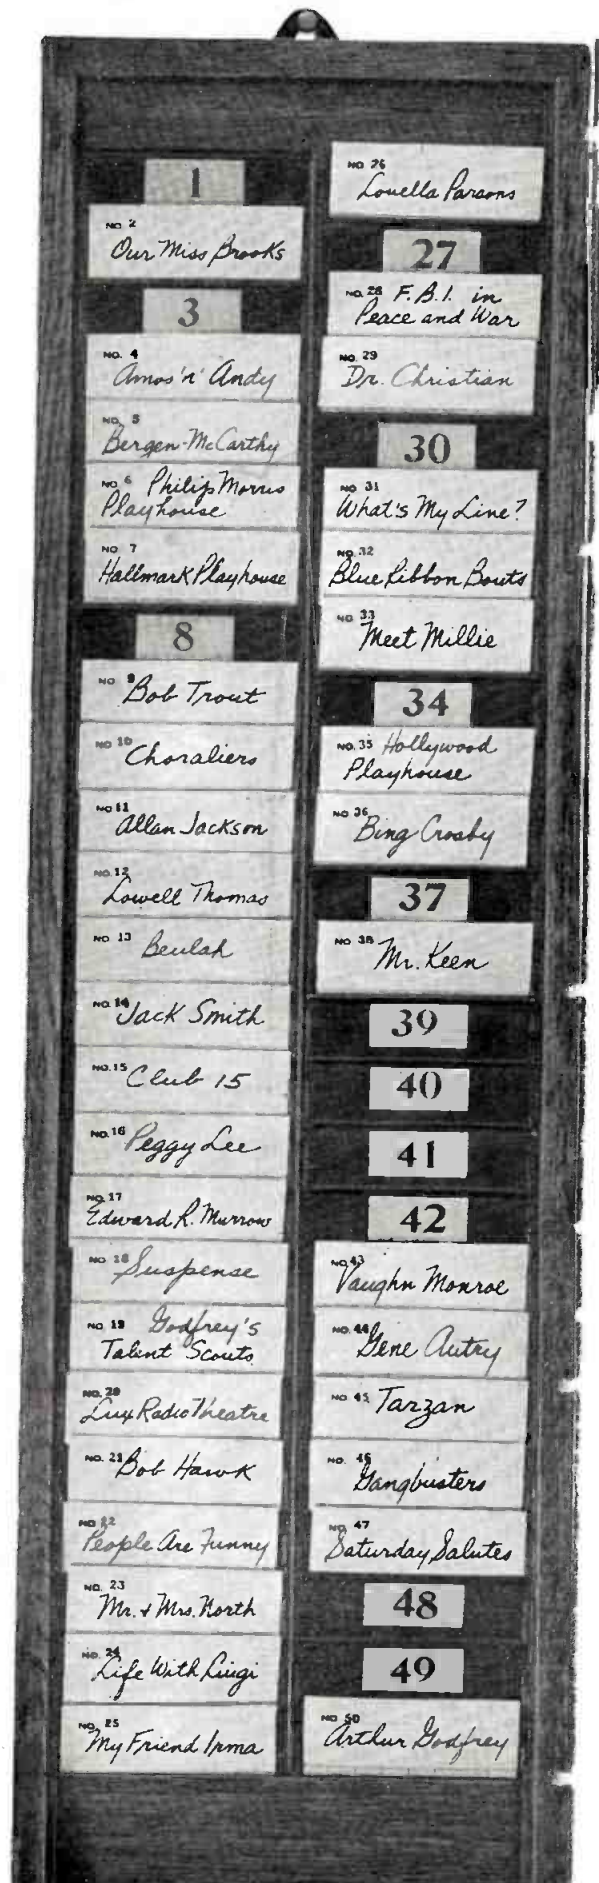 1
NO. 2
Our Miss Brooks
3
NO. 4
Amos 'n' Andy
NO. 5
Bergen-McCarthy
NO. 6 Philip Morris
Playhouse
NO. 7
Hallmark Playhouse
8
NO. 9
Bob Trout
NO. 10
Choraliers
NO. 11
Allan Jackson
NO. 12
Lowell Thomas
NO. 13 Beulah
NO. 14 Jack Smith
NO. 15 Club 15
NO. 16 Peggy Lee
NO. 17
Edward R. Murrow
NO. 18 Suspense
NO. 19 Godfrey's
Talent Scouts
NO. 20
Lux Radio Theatre
NO. 21 Bob Hawk
NO. 22
People Are Funny
NO. 23
Mr. + Mrs. North
NO. 24
Life With Luigi
NO. 25
My Friend Irma
NO. 26
Louella Parsons
27
NO. 28 F.B.I. in
Peace and War
NO. 29
Dr. Christian
30
NO. 31
What's My Line?
NO. 32
Blue Ribbon Bouts
NO. 33
Meet Millie
34
NO. 35 Hollywood
Playhouse
NO. 36
Bing Crosby
37
NO. 38 Mr. Keen
39
40
41
42
NO. 43
Vaughn Monroe
NO. 44
Gene Autry
NO. 45 Tarzan
NO. 46
Gangbusters
NO. 47
Saturday Salutes
48
49
NO. 50
Arthur Godfrey